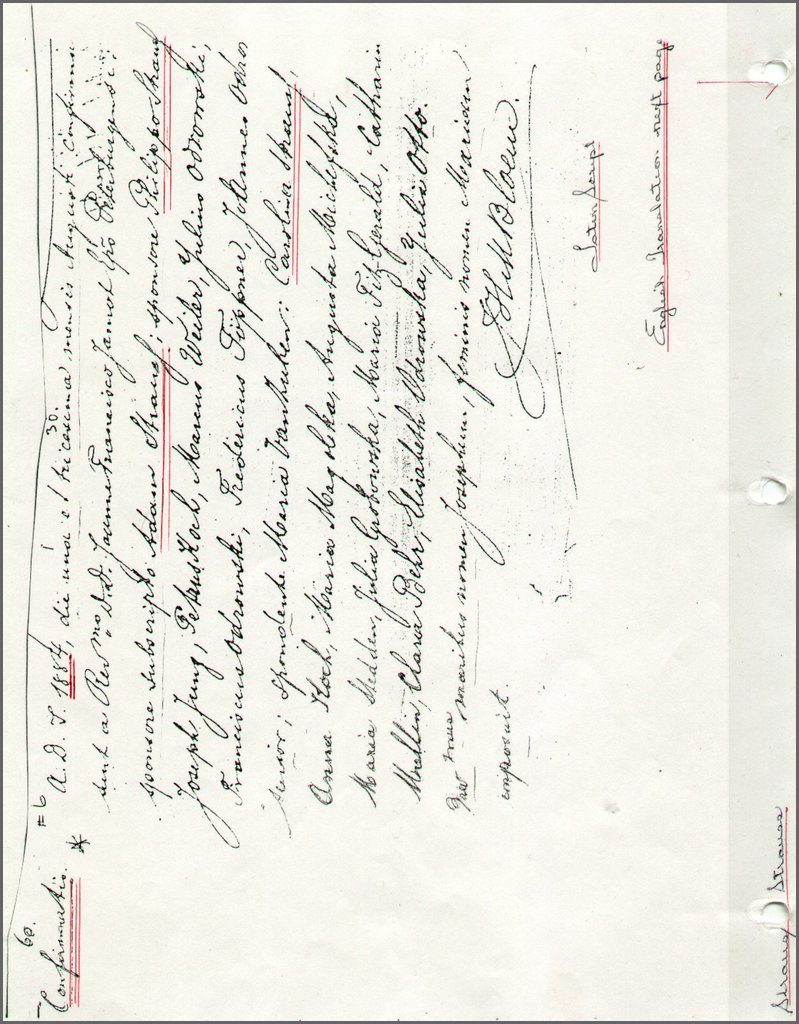 60.
Confirmatio.
#6
A. D. I. 1884, die una et tricesima mensis Augusti confirmati
30.
sunt a Revmo D.D. Joanne Francisco Jamot Epo Peterburgensi:
sponsore subscripto Adam Strauss; sponsore Philippo Strauss
Joseph Jung, Petrus Koch, Marcus Weiler, Julius Odrowski,
Franciscus Odrowski, Fredericus Töppner, Johannes
senior; spondente Maria VanKuken: Carolina Strauss,
Anna Koch, Maria Magdleka, Augusta Michefska,
Maria Shedden, Julia Grobowska, Maria Fitz-Gerald, Catharin
Mrellin, Clara Behr, Elisabeth Odrowska, Julia Otto.
maribus nomen Josephum, feminis nomen Mariam
imposuit.
Bloem.
Latin Script
English Translation next page
Strauss Strauss